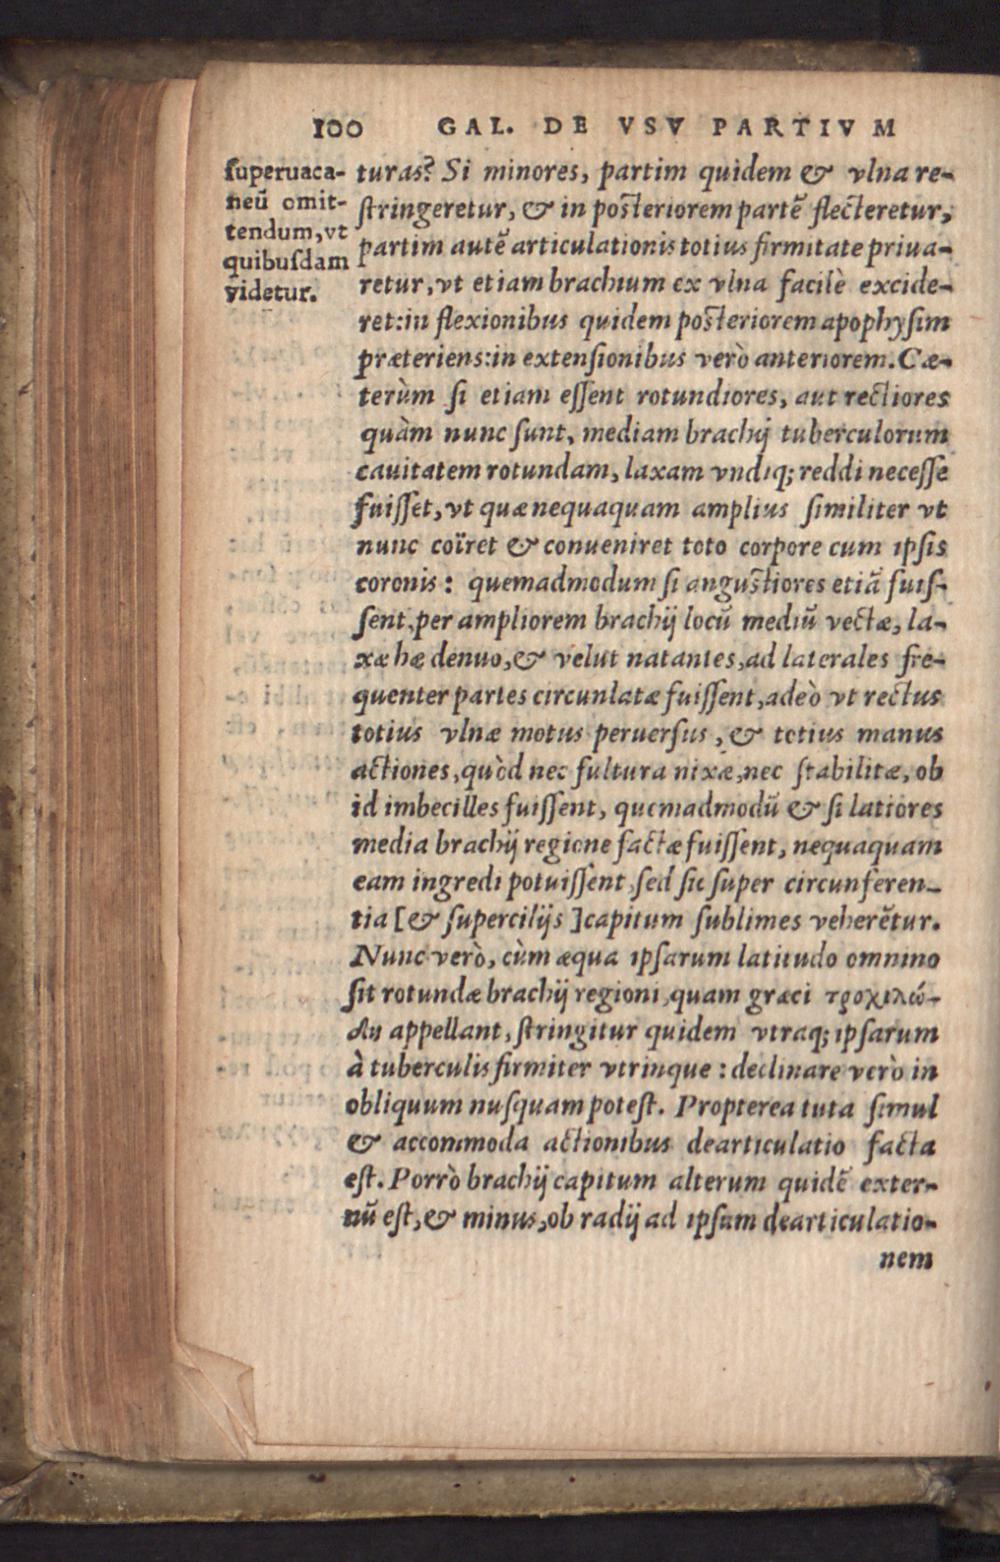 100 GAL. DE VSV PARTIVM
superuaca-
neū omit-
tendum, vt
quibusdam
videtur.
turas? Si minores, partim quidem & vlna re-
stringeretur, & in posteriorem partē flecteretur,
partim autē articulationis totius firmitate priua-
retur, vt etiam brachium ex vlna facilè excide-
ret: in flexionibus quidem posteriorem apophysim
præteriens: in extensionibus verò anteriorem. Cæ-
terùm si etiam essent rotundiores, aut rectiores
quàm nunc sunt, mediam brachij tuberculorum
cauitatem rotundam, laxam vndiq; reddi necesse
fuisset, vt quæ nequaquam amplius similiter vt
nunc coïret & conueniret toto corpore cum ipsis
coronis: quemadmodum si angustiores etiā fuis-
sent, per ampliorem brachij locū mediū vectæ, la-
xæ hæ denuo, & velut natantes, ad laterales fre-
quenter partes circunlatæ fuissent, adeò vt rectus
totius vlnæ motus peruersus, & totius manus
actiones, quòd nec fultura nixæ, nec stabilitæ, ob
id imbecilles fuissent, quemadmodū & si latiores
media brachij regione factæ fuissent, nequaquam
eam ingredi potuissent, sed sic super circunferen-
tia [& supercilijs ] capitum sublimes veherētur.
Nunc verò, cùm æqua ipsarum latitudo omnino
sit rotundæ brachij regioni, quam græci τροχιλώ-
δη appellant, stringitur quidem vtraq; ipsarum
à tuberculis firmiter vtrinque: declinare verò in
obliquum nusquam potest. Propterea tuta simul
& accommoda actionibus dearticulatio facta
est. Porrò brachij capitum alterum quidē exter-
nū est, & minus, ob radij ad ipsum dearticulatio-
nem